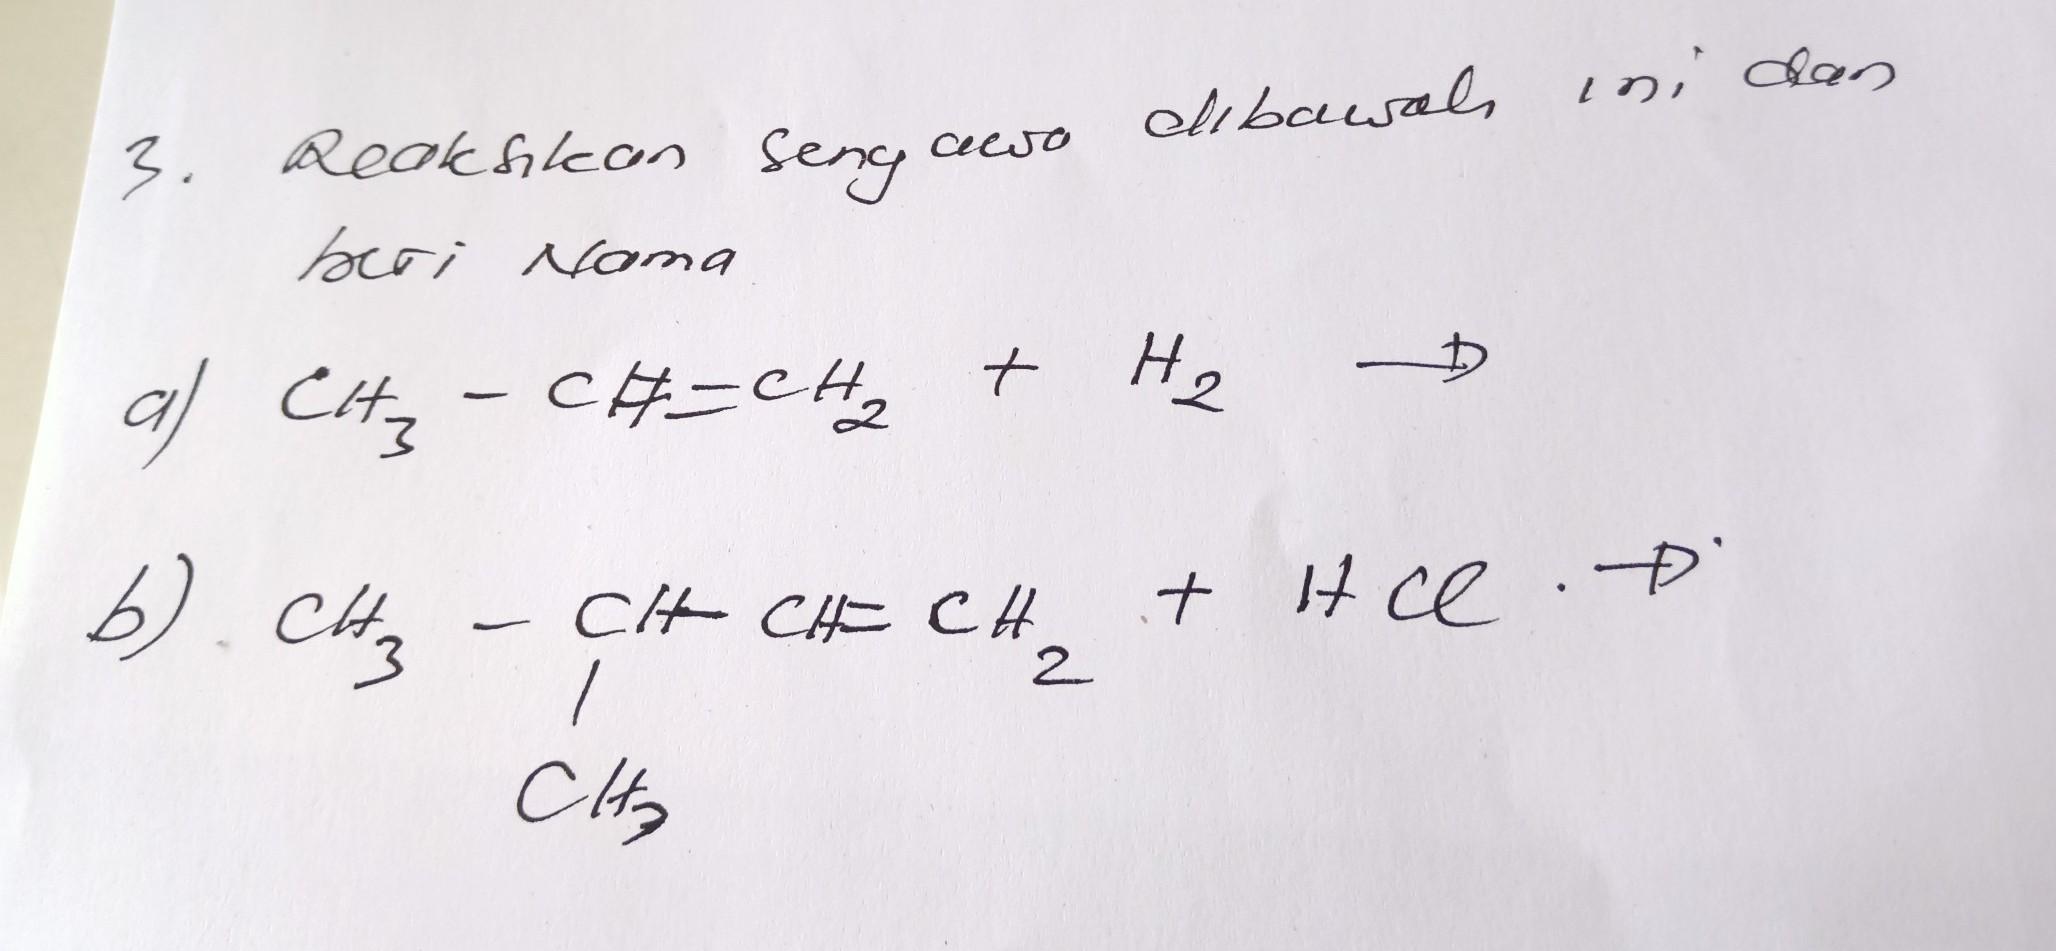 3. Reaksikan Senyawa dibawah ini dan
beri Nama
a) CH₃ - CH=CH₂ + H₂ →
b) CH₃ - CH - CH = CH₂ + HCl . →
|
CH₃